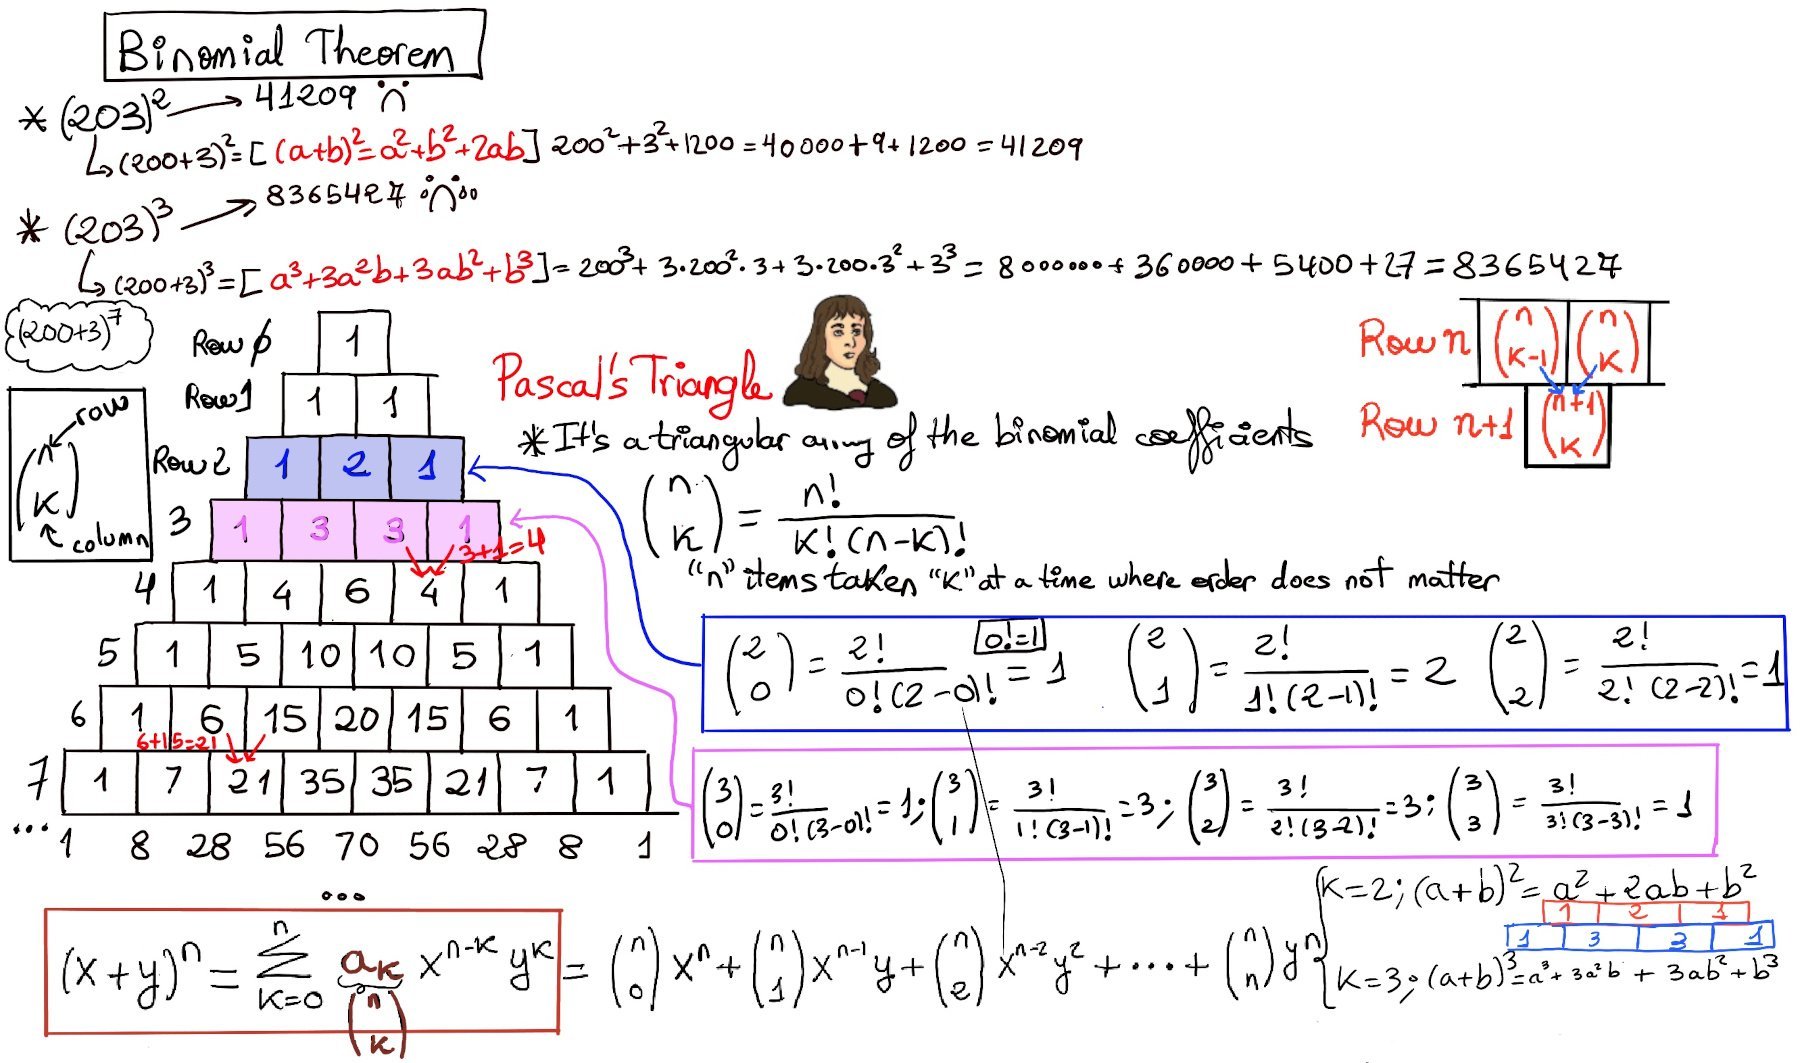 Binomial Theorem
* (203)² → 41209
↳ (200+3)² = [(a+b)² = a²+b²+2ab] 200²+3²+1200 = 40000+9+1200 = 41209
* (203)³ → 8365427
↳ (200+3)³ = [a³+3a²b+3ab²+b³] = 200³+3·200²·3+3·200·3²+3³ = 8000000+360000+5400+27 = 8365427
(200+3)⁷
(n K) row column
Row 0 1
Row 1 1 1
Row 2 1 2 1
3 1 3 3 1
3+1=4
4 1 4 6 4 1
5 1 5 10 10 5 1
6 1 6 15 20 15 6 1
6+15=21
7 1 7 21 35 35 21 7 1
... 1 8 28 56 70 56 28 8 1
...
Pascal's Triangle
* It's a triangular array of the binomial coefficients
Row n (n K-1) (n K)
Row n+1 (n+1 K)
(n K) = n! / K!(n-K)!
"n" items taken "K" at a time where order does not matter
(2 0) = 2! / 0!(2-0)! = 1 0!=1 (2 1) = 2! / 1!(2-1)! = 2 (2 2) = 2! / 2!(2-2)! = 1
(3 0) = 3! / 0!(3-0)! = 1; (3 1) = 3! / 1!(3-1)! = 3; (3 2) = 3! / 2!(3-2)! = 3; (3 3) = 3! / 3!(3-3)! = 1
(x+y)ⁿ = Σ n K=0 aₖ (n K) xⁿ⁻ᴷ yᴷ = (n 0) xⁿ + (n 1) xⁿ⁻¹y + (n 2) xⁿ⁻²y² + ... + (n n) yⁿ
K=2; (a+b)² = a² + 2ab + b²
1 2 1
1 3 3 1
K=3; (a+b)³ = a³ + 3a²b + 3ab² + b³